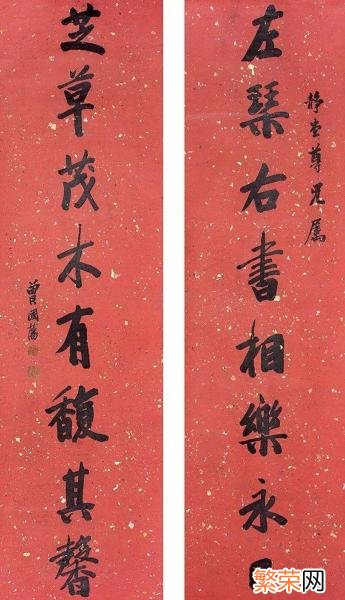 静尊兄屬
左琴右書相樂永日
芝草茂木有馥其馨
曾國藩
繁荣网